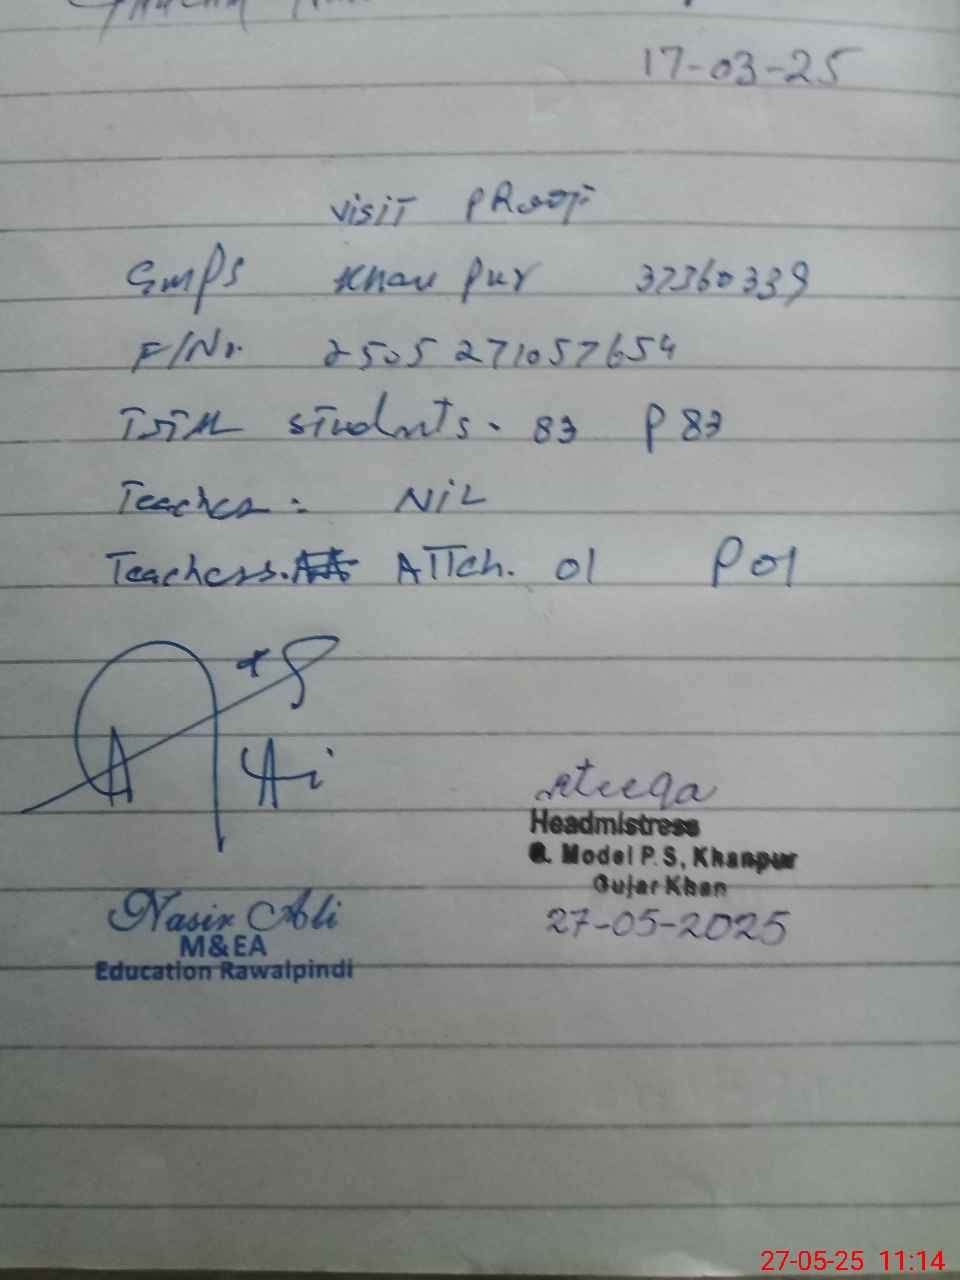 17-03-25
visit PRoof
GMPS Khan pur 37360339
F/Nr. 2505271057654
Total students. 83 P 83
Teacher : NiL
Teachers. ATTch. 01 P 01
Ali
Ateeqa
Headmistress
G. Model P.S, Khanpur
Gujar Khan
27-05-2025
Nasir Ali
M&EA
Education Rawalpindi
27-05-25 11:14